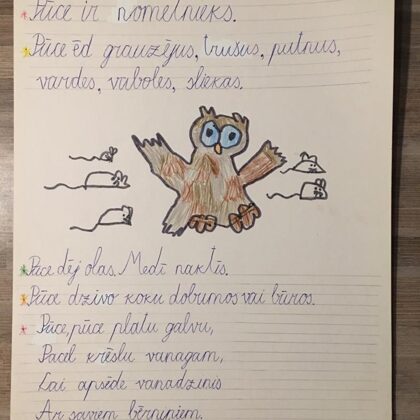 Pūce ir nometnieks.
Pūce ēd grauzējus, trušus, putnus,
vardes, vaboles, sliekas.
Pūce dēj olas. Medī naktīs.
Pūce dzīvo koku dobumos vai būros.
Pūce, pūce platu galvu,
Pacel krēslu vanagam,
Lai apsēde vanadzinis
Ar saviem bērniņiem.